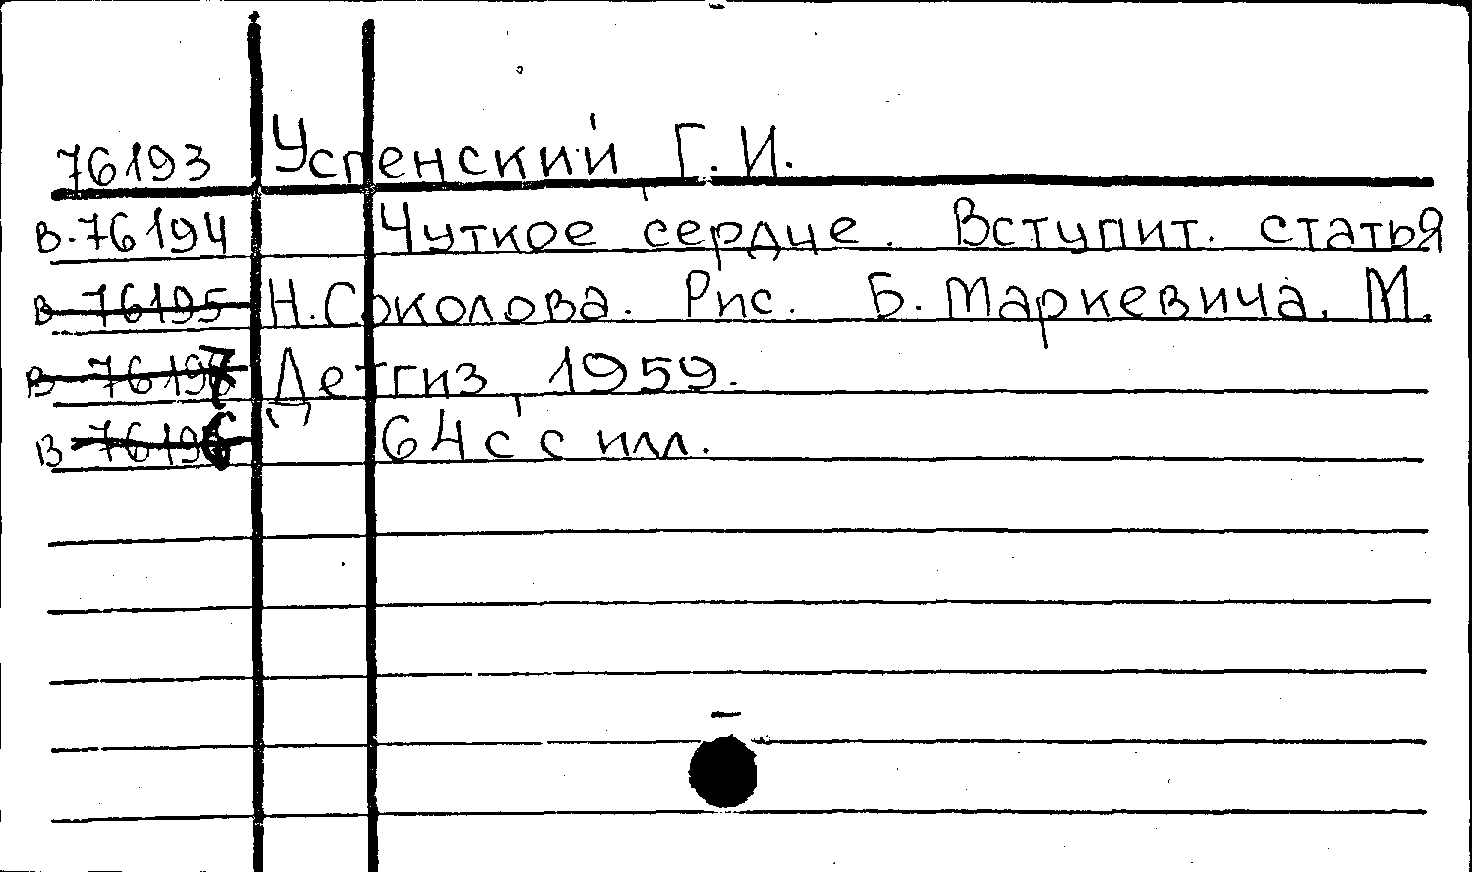 76193 Успенский Г. И.
в. 76194 Чуткое сердце. Вступит. статья
в 76195 Н. Соколова. Рис. Б. Маркевича. М.
в 76197 Детгиз 1959.
в 76196 64 с с илл.